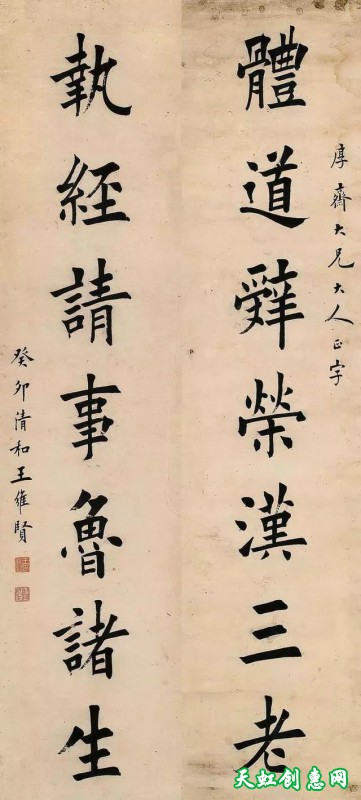 厚齋大兄大人正字
體道辤榮漢三老
執經請事魯諸生
癸卯清和王維賢
天虹创惠网